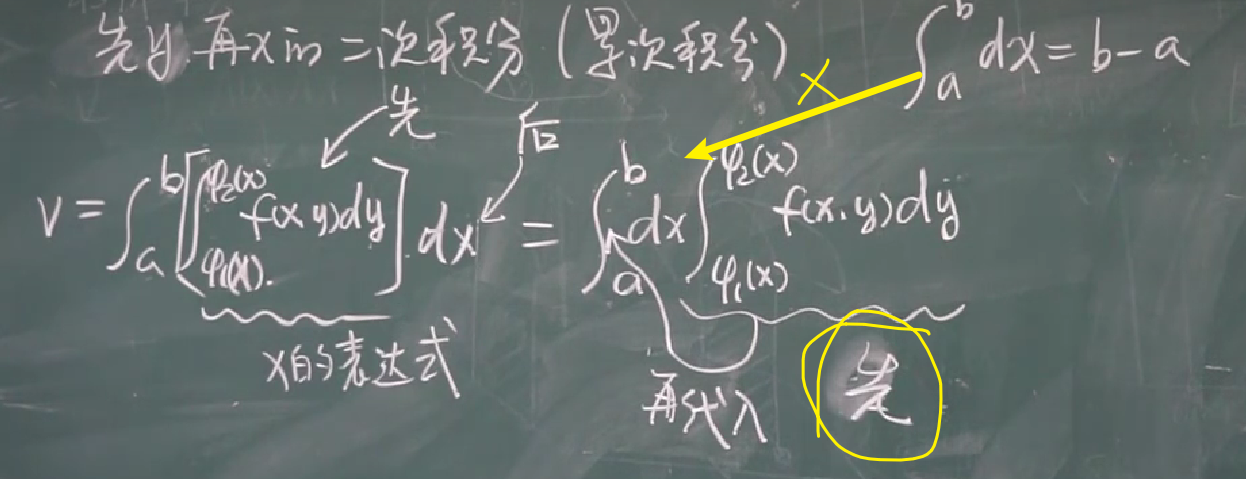 先y再x的二次积分(累次积分) ∫_a^b dx=b-a
先 后 X
V=∫_a^b[∫_{φ₁(x)}^{φ₂(x)} f(x,y)dy]dx=∫_a^b dx∫_{φ₁(x)}^{φ₂(x)} f(x,y)dy
x的表达式 再代入 先